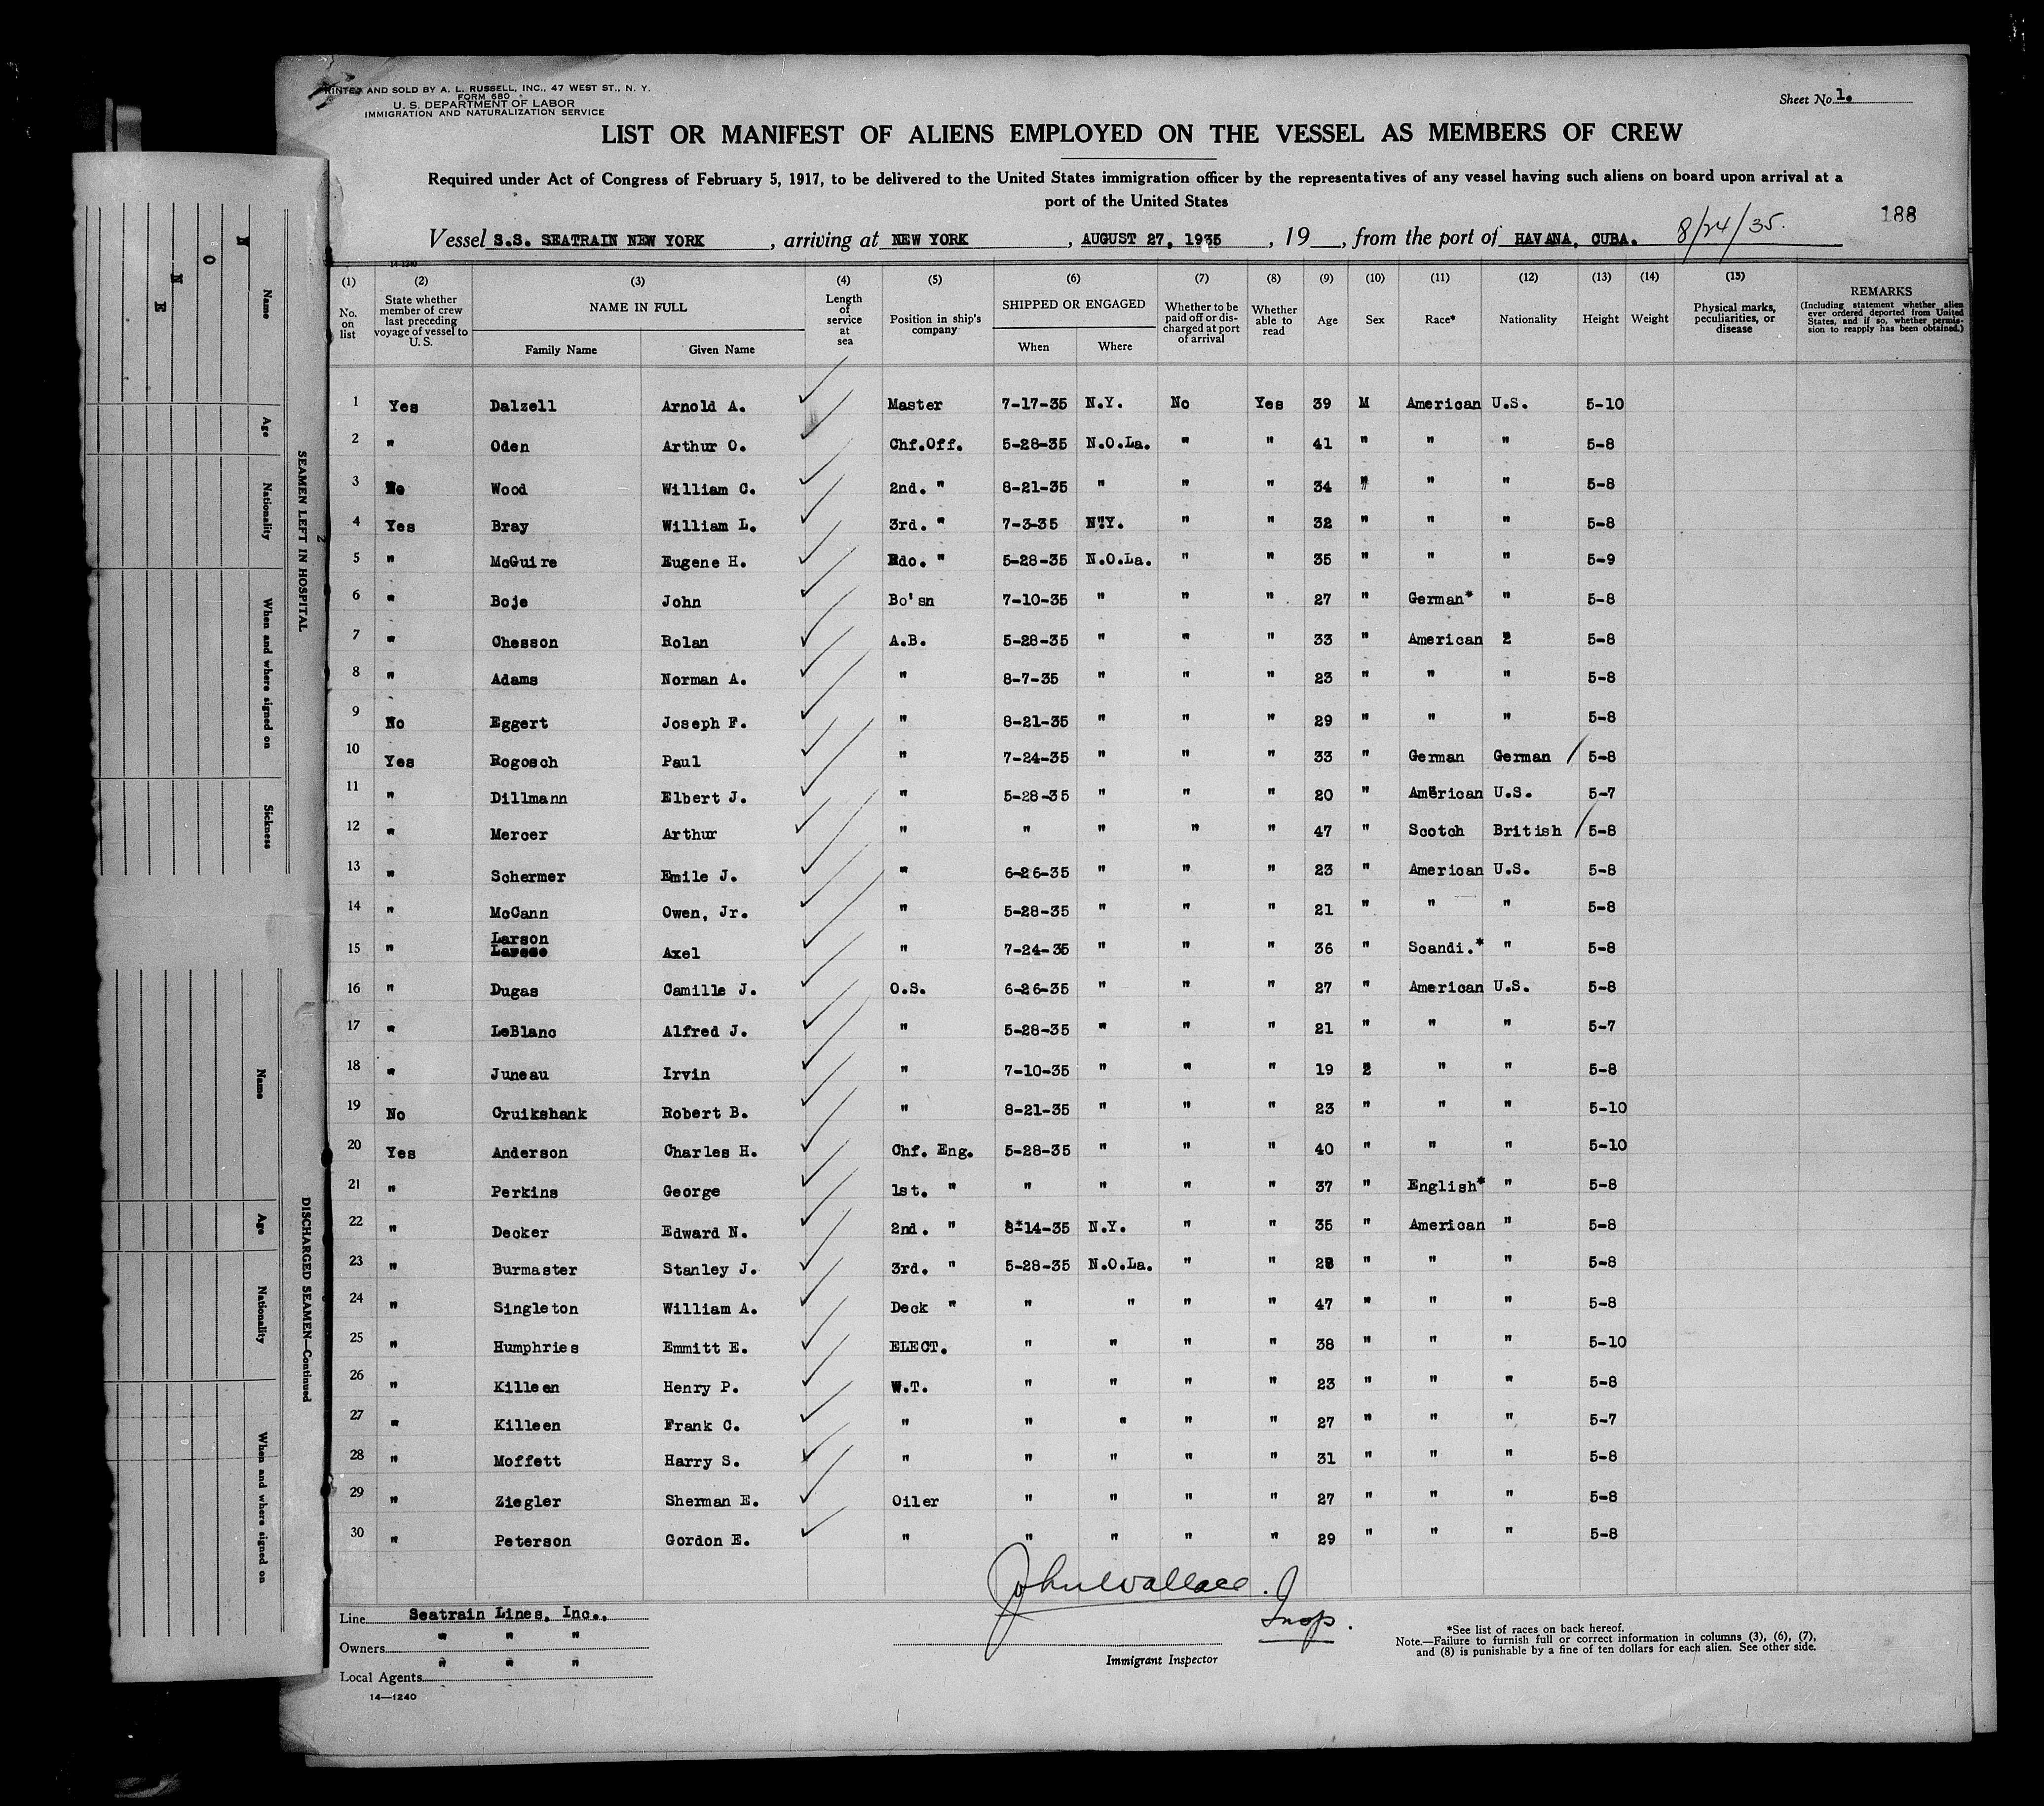 PRINTED AND SOLD BY A. L. RUSSELL, INC., 47 WEST ST., N. Y.
FORM 680
U. S. DEPARTMENT OF LABOR
IMMIGRATION AND NATURALIZATION SERVICE
Sheet No. 1.
LIST OR MANIFEST OF ALIENS EMPLOYED ON THE VESSEL AS MEMBERS OF CREW
Required under Act of Congress of February 5, 1917, to be delivered to the United States immigration officer by the representatives of any vessel having such aliens on board upon arrival at a
port of the United States
188
Vessel S.S. SEATRAIN NEW YORK, arriving at NEW YORK, AUGUST 27, 1935, 19__, from the port of HAVANA, CUBA. 8/24/35.
14-1240
(1) (2) (3) (4) (5) (6) (7) (8) (9) (10) (11) (12) (13) (14) (15)
No. on list
State whether member of crew last preceding voyage of vessel to U.S.
NAME IN FULL
Family Name Given Name
Length of service at sea
Position in ship's company
SHIPPED OR ENGAGED
When Where
Whether to be paid off or discharged at port of arrival
Whether able to read
Age Sex Race* Nationality Height Weight
Physical marks, peculiarities, or disease
REMARKS
(Including statement whether alien ever ordered deported from United States, and if so, whether permission to reapply has been obtained.)
1 Yes Dalzell Arnold A. Master 7-17-35 N.Y. No Yes 39 M American U.S. 5-10
2 " Oden Arthur O. Chf.Off. 5-28-35 N.O.La. " " 41 " " " 5-8
3 No Wood William C. 2nd. " 8-21-35 " " " 34 " " " 5-8
4 Yes Bray William L. 3rd. " 7-3-35 N.Y. " " 32 " " " 5-8
5 " McGuire Eugene H. Rdo. " 5-28-35 N.O.La. " " 35 " " " 5-9
6 " Boje John Bo'sn 7-10-35 " " " 27 " German* " 5-8
7 " Chesson Rolan A.B. 5-28-35 " " " 33 " American 2 5-8
8 " Adams Norman A. " 8-7-35 " " " 23 " " " 5-8
9 No Eggert Joseph F. " 8-21-35 " " " 29 " " " 5-8
10 Yes Rogosch Paul " 7-24-35 " " " 33 " German German / 5-8
11 " Dillmann Elbert J. " 5-28-35 " " " 20 " American U.S. 5-7
12 " Mercer Arthur " " " " " 47 " Scotch British / 5-8
13 " Schermer Emile J. " 6-26-35 " " " 23 " American U.S. 5-8
14 " McCann Owen, Jr. " 5-28-35 " " " 21 " " " 5-8
15 " Larson Axel " 7-24-35 " " " 36 " Scandi.* " 5-8
16 " Dugas Camille J. O.S. 6-26-35 " " " 27 " American U.S. 5-8
17 " LeBlanc Alfred J. " 5-28-35 " " " 21 " " " 5-7
18 " Juneau Irvin " 7-10-35 " " " 19 2 " " 5-8
19 No Cruikshank Robert B. " 8-21-35 " " " 23 " " " 5-10
20 Yes Anderson Charles H. Chf. Eng. 5-28-35 " " " 40 " " " 5-10
21 " Perkins George 1st. " " " " " 37 " English* " 5-8
22 " Decker Edward N. 2nd. " 8-14-35 N.Y. " " 35 " American " 5-8
23 " Burmaster Stanley J. 3rd. " 5-28-35 N.O.La. " " " " " 5-8
24 " Singleton William A. Deck " " " " " 47 " " " 5-8
25 " Humphries Emmitt E. ELECT. " " " " 38 " " " 5-10
26 " Killeen Henry P. W.T. " " " " 23 " " " 5-8
27 " Killeen Frank C. " " " " " 27 " " " 5-7
28 " Moffett Harry S. " " " " " 31 " " " 5-8
29 " Ziegler Sherman E. Oiler " " " " 27 " " " 5-8
30 " Peterson Gordon E. " " " " " 29 " " " 5-8
John Wallace. Insp.
Immigrant Inspector
Line Seatrain Lines, Inc.,
Owners " " "
Local Agents " " "
14—1240
*See list of races on back hereof.
Note.—Failure to furnish full or correct information in columns (3), (6), (7),
and (8) is punishable by a fine of ten dollars for each alien. See other side.
N O N E
SEAMEN LEFT IN HOSPITAL
2
Name
Age
Nationality
When and where signed on
Sickness
DISCHARGED SEAMEN—Continued
Name
Age
Nationality
When and where signed on